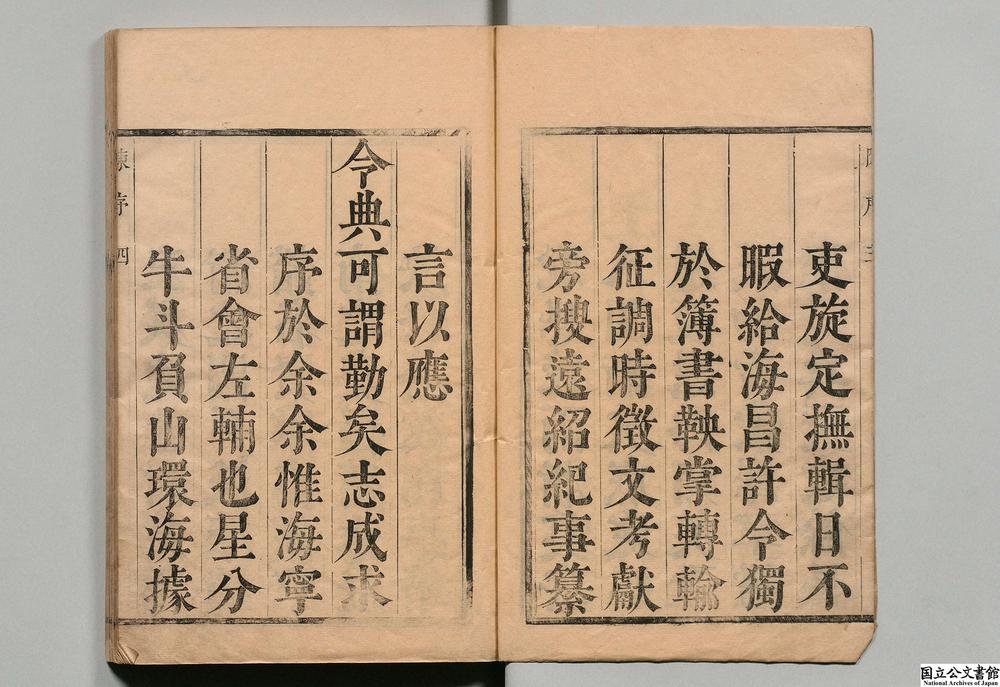 吏旋定撫輯日不
暇給海昌許令獨
於簿書鞅掌轉輸
征調時徵文考獻
旁搜遠紹紀事纂
言以應
令典可謂勤矣志成求
序於余余惟海寧
省會左輔也星分
牛斗負山環海據
陳序 四
国立公文書館
National Archives of Japan